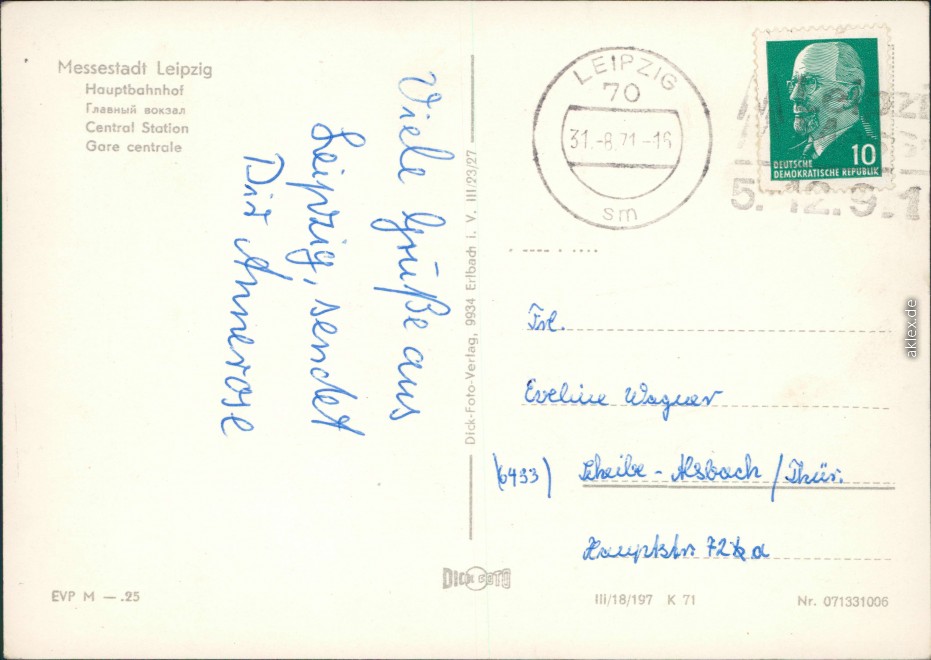 Messestadt Leipzig
Hauptbahnhof
Главный вокзал
Central Station
Gare centrale
Viele Grüße aus
Leipzig, sendet
Dir Annerose
EVP M — .25
Dick-Foto-Verlag, 9934 Erlbach i. V. III/23/27
DICK FOTO
LEIPZIG
70
31.-8.71-16
sm
5.-12.9.1
10
DEUTSCHE
DEMOKRATISCHE REPUBLIK
Frl.
Eveline Wagner
(6433) Scheibe-Alsbach/Thür.
Hauptstr. 72 a
III/18/197 K 71
Nr. 071331006
aklex.de